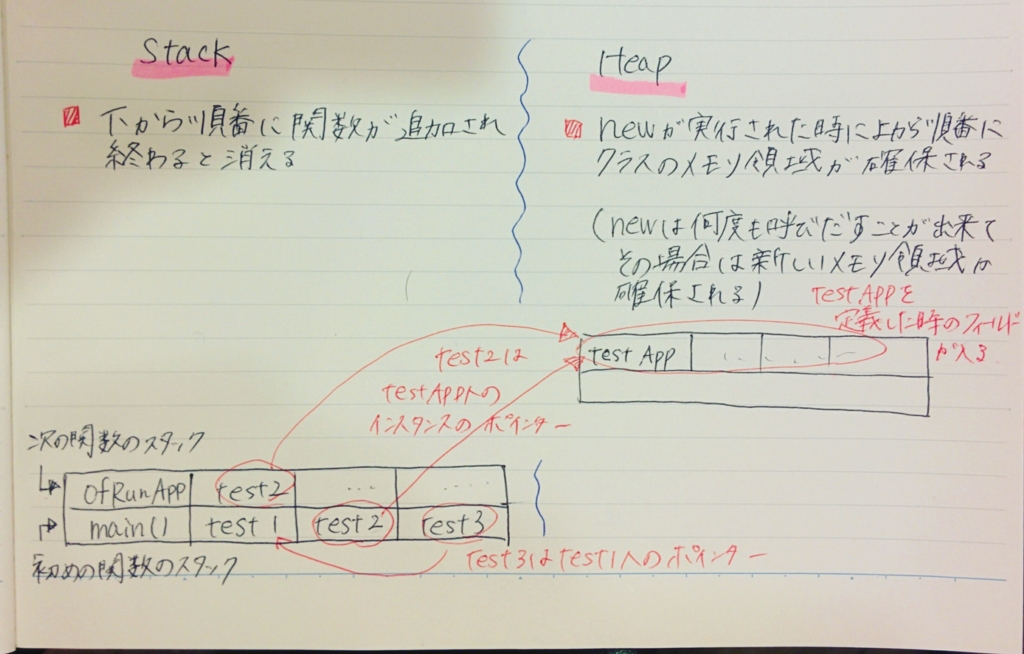 Stack
下から順番に関数が追加され
終わると消える
Heap
newが実行された時に上から順番に
クラスのメモリ領域が確保される
(newは何度も呼びだすことが出来て
その場合は新しいメモリ領域が
確保される)
testAppを
定義した時のフィールド
が入る
testApp ... ... ...
test2は
testAppへの
インスタンスのポインター
次の関数のスタック
ofRunApp test2 ... ....
main() test1 test2 test3
初めの関数のスタック
test3はtest1へのポインター